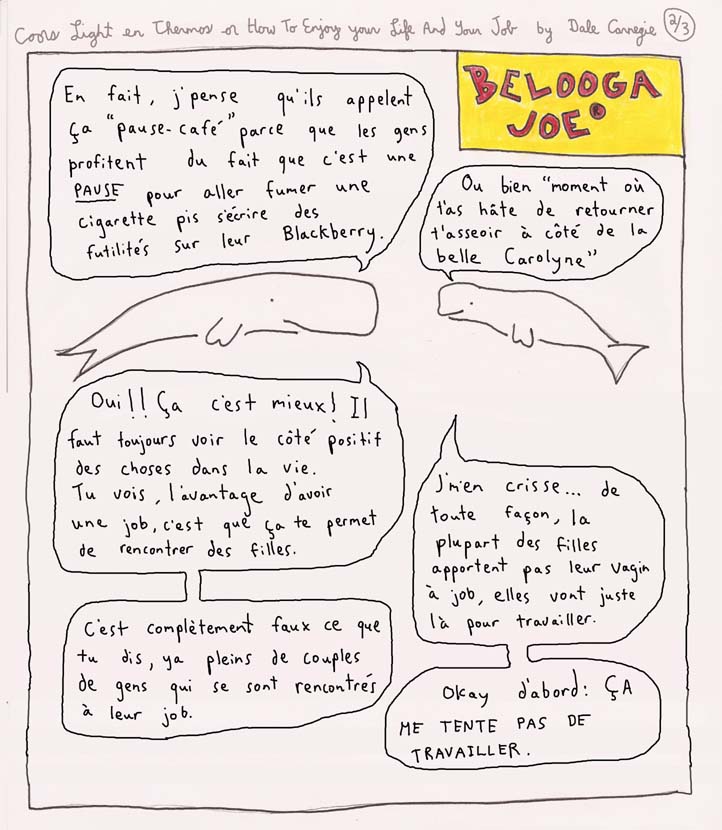 Coors Light en Thermos or How To Enjoy your Life And Your Job by Dale Carnegie 2/3
BELOOGA
JOE®
En fait, j'pense qu'ils appelent
ça "pause-café" parce que les gens
profitent du fait que c'est une
PAUSE pour aller fumer une
cigarette pis s'écrire des
futilités sur leur Blackberry.
Ou bien "moment où
t'as hâte de retourner
t'asseoir à côté de la
belle Carolyne"
Oui!! Ça c'est mieux! Il
faut toujours voir le côté positif
des choses dans la vie.
Tu vois, l'avantage d'avoir
une job, c'est que ça te permet
de rencontrer des filles.
J'm'en crisse... de
toute façon, la
plupart des filles
apportent pas leur vagin
à job, elles vont juste
là pour travailler.
C'est complètement faux ce que
tu dis, ya pleins de couples
de gens qui se sont rencontrés
à leur job.
Okay d'abord: ÇA
ME TENTE PAS DE
TRAVAILLER.